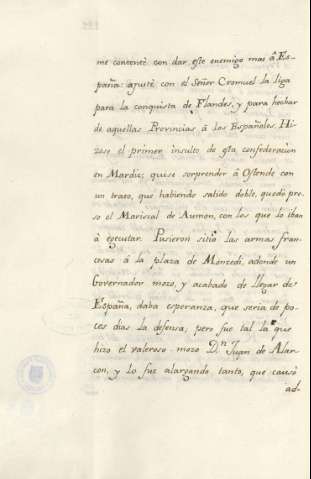 me contenté con dar este enemigo mas â Es-
paña: ajusté con el Señor Cromuel la liga
para la conquista de Flandes, y para hechar
de aquellas Provincias â los Españoles. Hi-
zose el primer insulto de esta confederacion
en Mardic; quise sorprender â Ostende con
un trato, que habiendo salido doble, quedó pre-
so el Mariscal de Aumon, con los que lo iban
â egecutar. Pusieron sitio las armas fran-
cesas â la plaza de Monzedi, adonde un
Governador mozo, y acabado de llegar de
España, daba esperanza, que seria de po-
cos dias la defensa, pero fue tal la que
hizo el valeroso mozo D.n Juan de Alar-
con, y lo fue alargando tanto, que causó
ad-